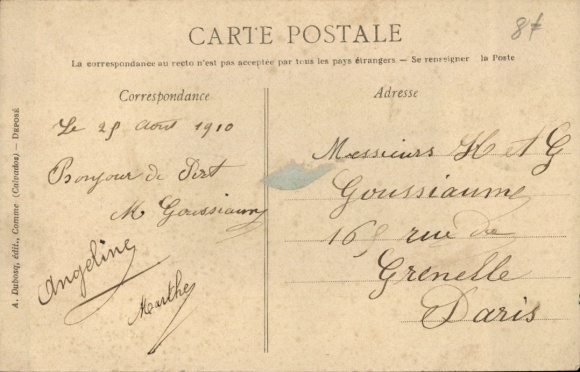 CARTE POSTALE
8f
La correspondance au recto n'est pas acceptée par tous les pays étrangers. — Se renseigner la Poste
Correspondance
Le 25 Août 1910
Bonjour de
M Goussiaume
Angeline
Marthe
Adresse
Messieurs H et G
Goussiaume
165 rue de
Grenelle
Paris
A. Dubosq, édit., Comme (Calvados) — DEPOSÉ